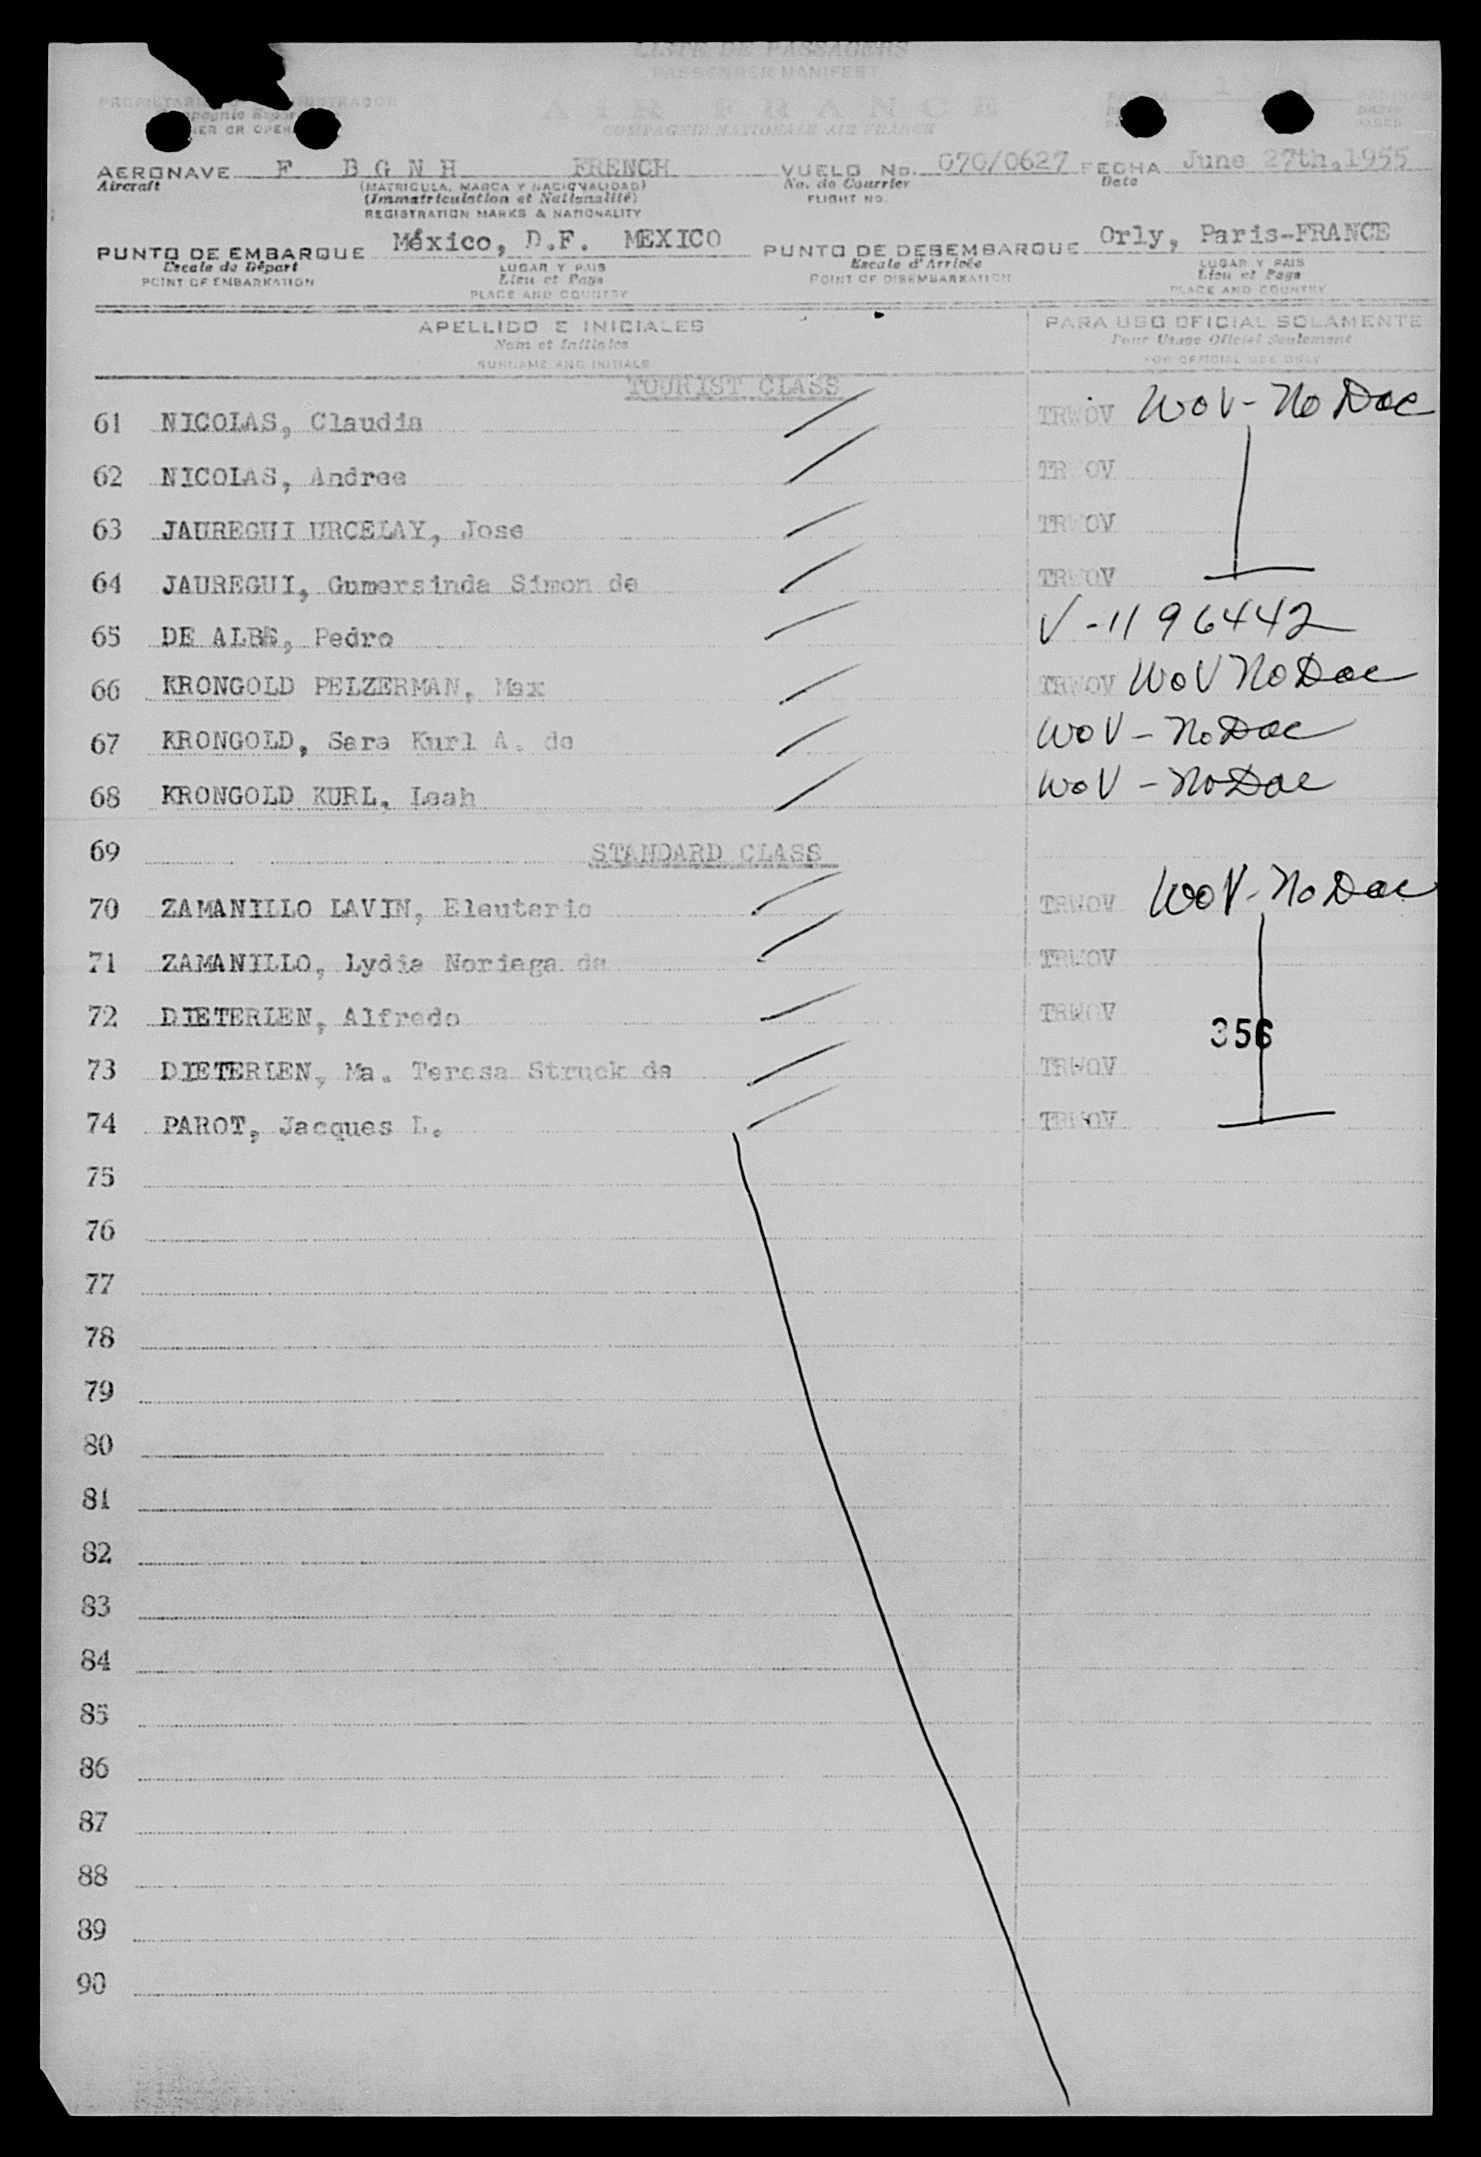 LISTE DE PASSAGERS
PASSENGER MANIFEST
AIR FRANCE
COMPAGNIE NATIONALE AIR FRANCE
AERONAVE F B G N H FRENCH VUELO No. 070/0627 FECHA June 27th,1955
Aircraft (MATRICULA, MARCA Y NACIONALIDAD) No. de Courrier Date
(Immatriculation et Nationalité) FLIGHT NO.
REGISTRATION MARKS & NATIONALITY
PUNTO DE EMBARQUE México, D.F. MEXICO PUNTO DE DESEMBARQUE Orly, Paris-FRANCE
Escale de Départ LUGAR Y PAIS Escale d'Arrivée LUGAR Y PAIS
POINT OF EMBARKATION Lieu et Pays POINT OF DISEMBARKATION Lieu et Pays
PLACE AND COUNTRY PLACE AND COUNTRY
APELLIDO E INICIALES PARA USO OFICIAL SOLAMENTE
Nom et Initiales Pour Usage Officiel Seulement
SURNAME AND INITIALS FOR OFFICIAL USE ONLY
TOURIST CLASS
61 NICOLAS, Claudia TRWOV WOV - No Doc
62 NICOLAS, Andree TRWOV
63 JAUREGUI URCELAY, Jose TRWOV
64 JAUREGUI, Gumersinda Simon de TRWOV
65 Pedro V-1196442
66 KRONGOLD PELZERMAN, Max TRWOV WOV No Doc
67 KRONGOLD, Sara Kurl A. de WOV - No Doc
68 KRONGOLD KURL, Leah WOV - No Doc
69 STANDARD CLASS
70 ZAMANILLO LAVIN, Eleuterio TRWOV WOV - No Doc
71 ZAMANILLO, Lydia Noriega de TRWOV
72 DIETERLEN, Alfredo TRWOV
356
73 DIETERLEN, Ma. Teresa Struck de TRWOV
74 PAROT, Jacques L. TRWOV
75
76
77
78
79
80
81
82
83
84
85
86
87
88
89
90